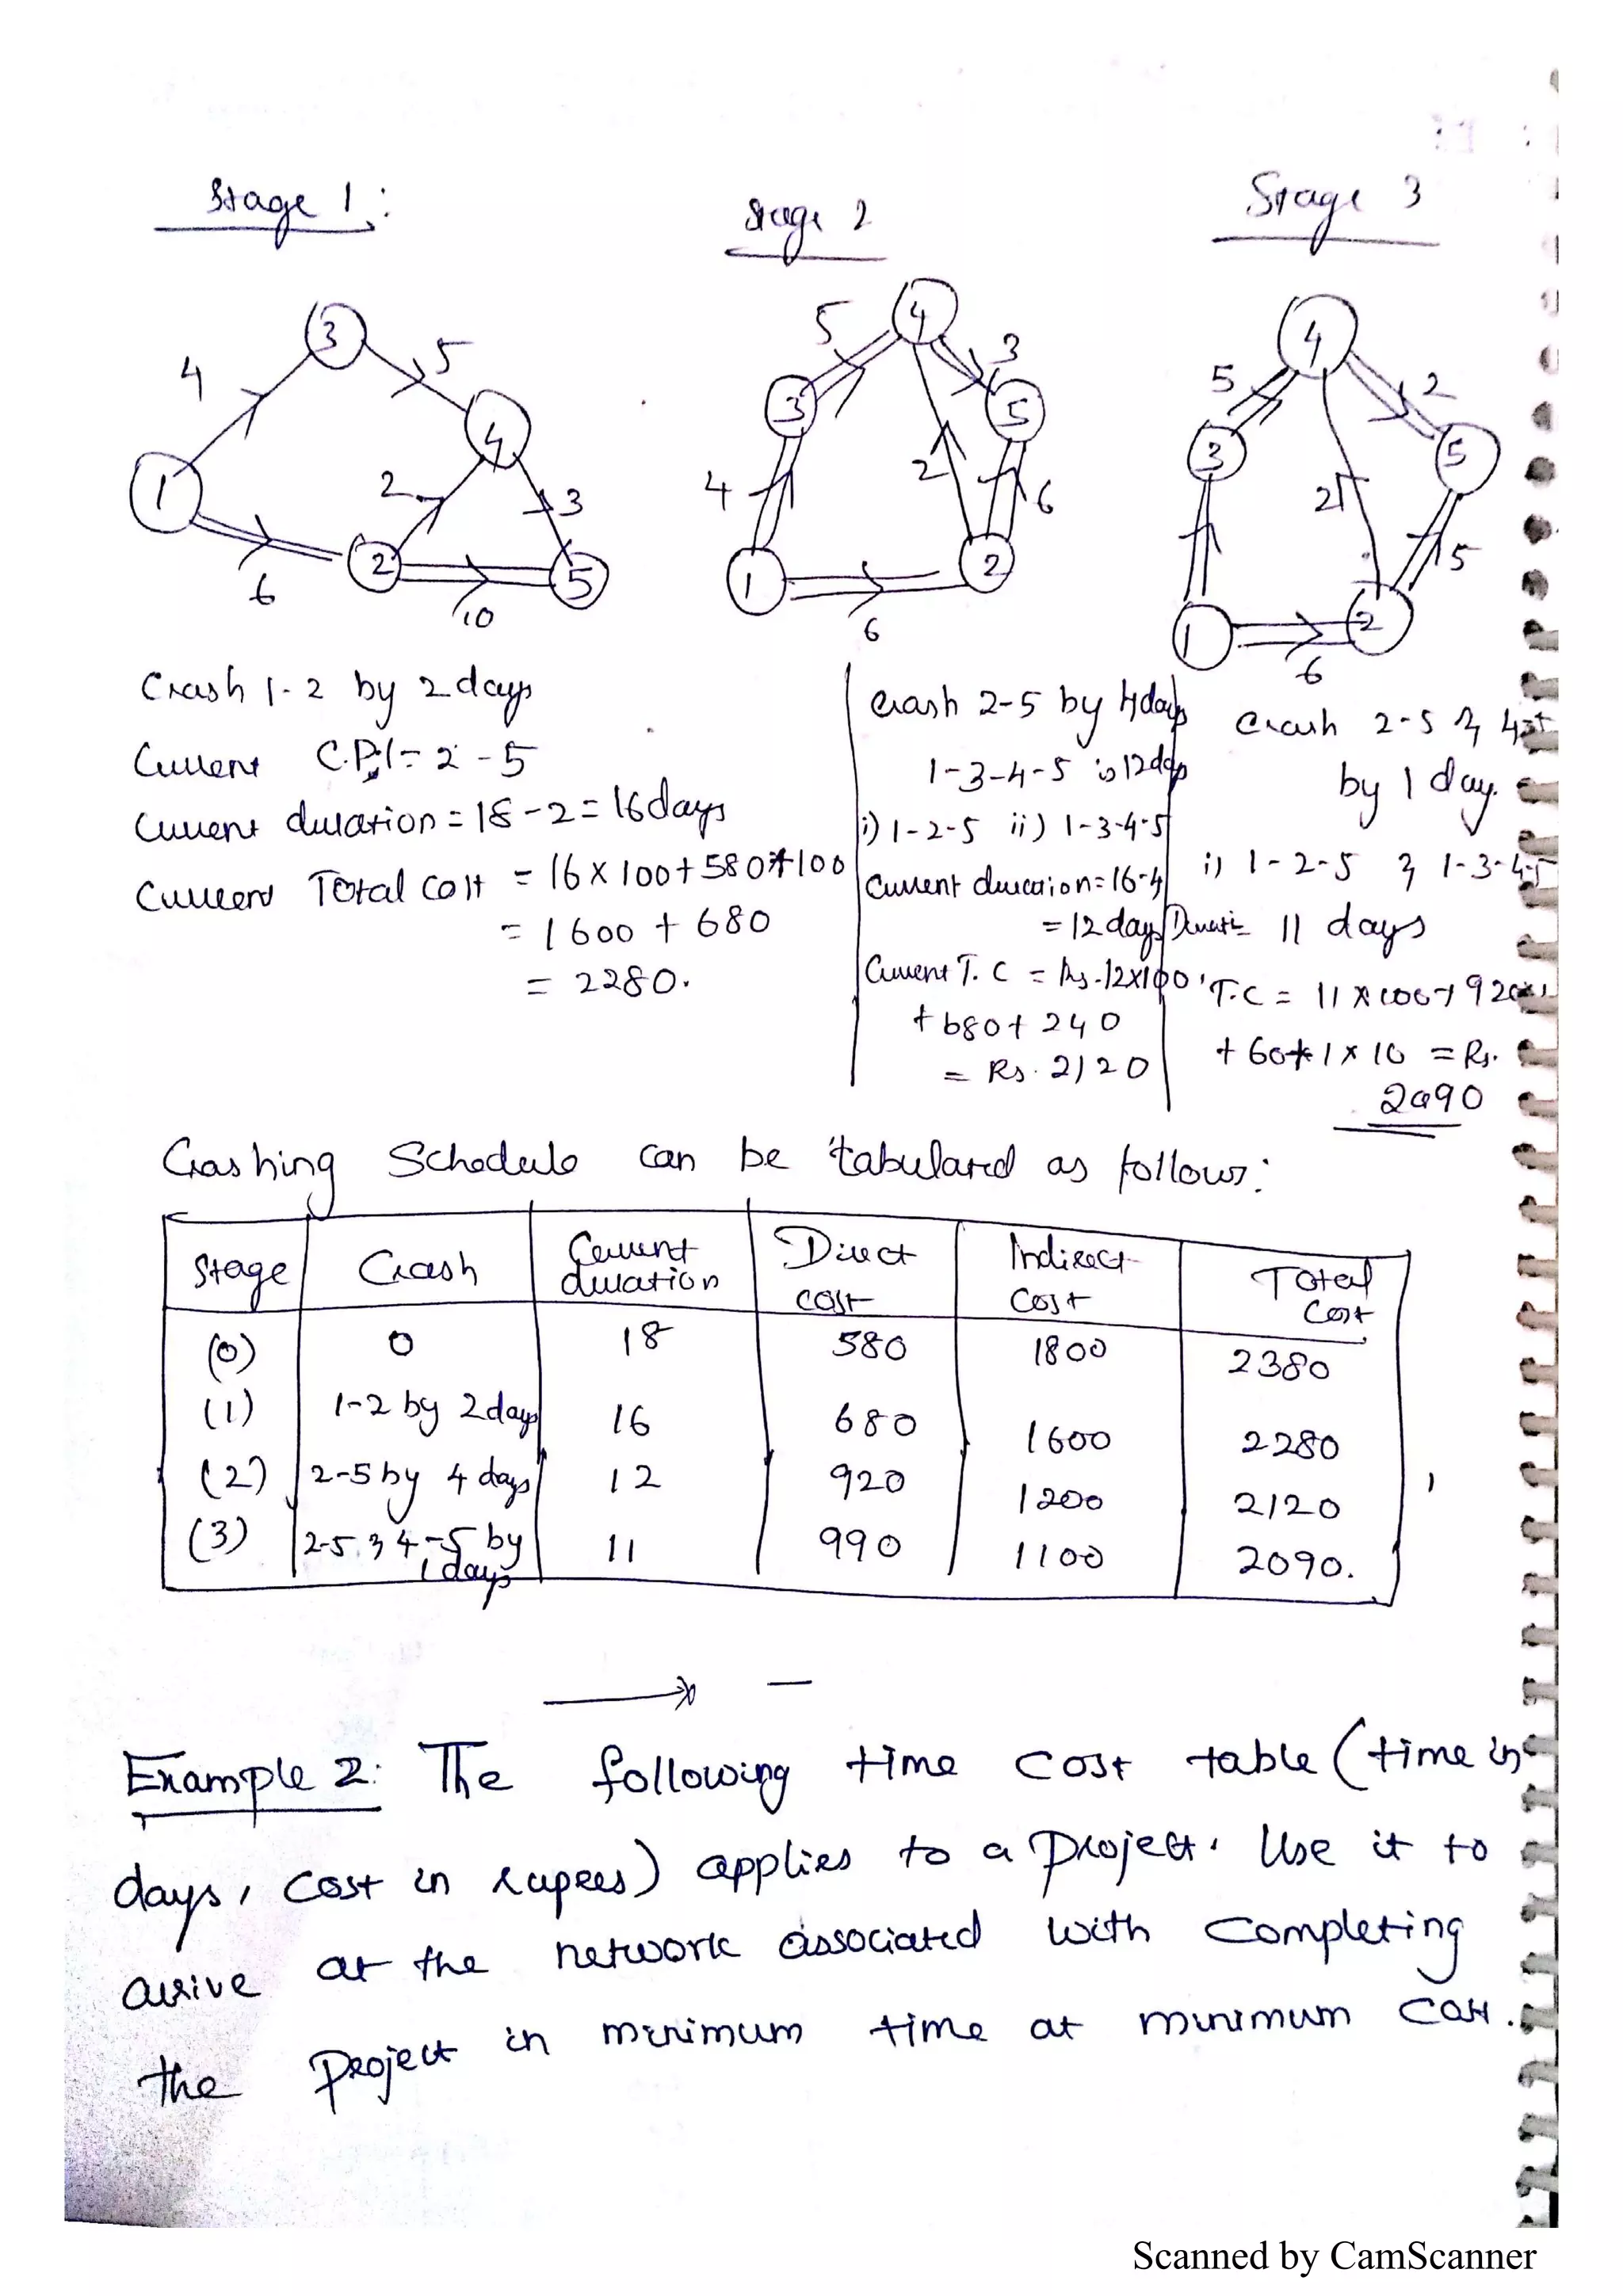 Stage 1:
Stage 2
Stage 3
3
4
5
1
4
2
3
6
2
10
5
4
5
3
3
5
4
2
6
1
2
6
4
5
2
3
5
2
5
1
2
6
Crash 1-2 by 2 days
Current C.P1 = 2 - 5
Current duration = 18 - 2 = 16 days
Current Total cost = 16 x 100 + 580 + 100
= 1600 + 680
= 2280.
Crash 2-5 by 4 days
1-3-4-5 is 12 days
i) 1-2-5 ii) 1-3-4-5
Current duration = 16-4
= 12 days
Current T.C = Rs. 12x100
+ 680 + 240
= Rs. 2120
Crash 2-5 & 4-5
by 1 day.
i) 1-2-5 & 1-3-4-5
11 days
T.C = 11 x 100 + 920
+ 60 + 1 x 10 = Rs.
2090
Crashing Schedule can be tabulated as follows:
Stage Crash Current duration Direct cost Indirect Cost Total Cost
(0) 0 18 580 1800 2380
(1) 1-2 by 2 days 16 680 1600 2280
(2) 2-5 by 4 days 12 920 1200 2120
(3) 2-5 & 4-5 by 1 days 11 990 1100 2090.
Example 2: The following time cost table (time in
days, cost in rupees) applies to a project. Use it to
arrive at the network associated with completing
the project in minimum time at minimum cost.
Scanned by CamScanner